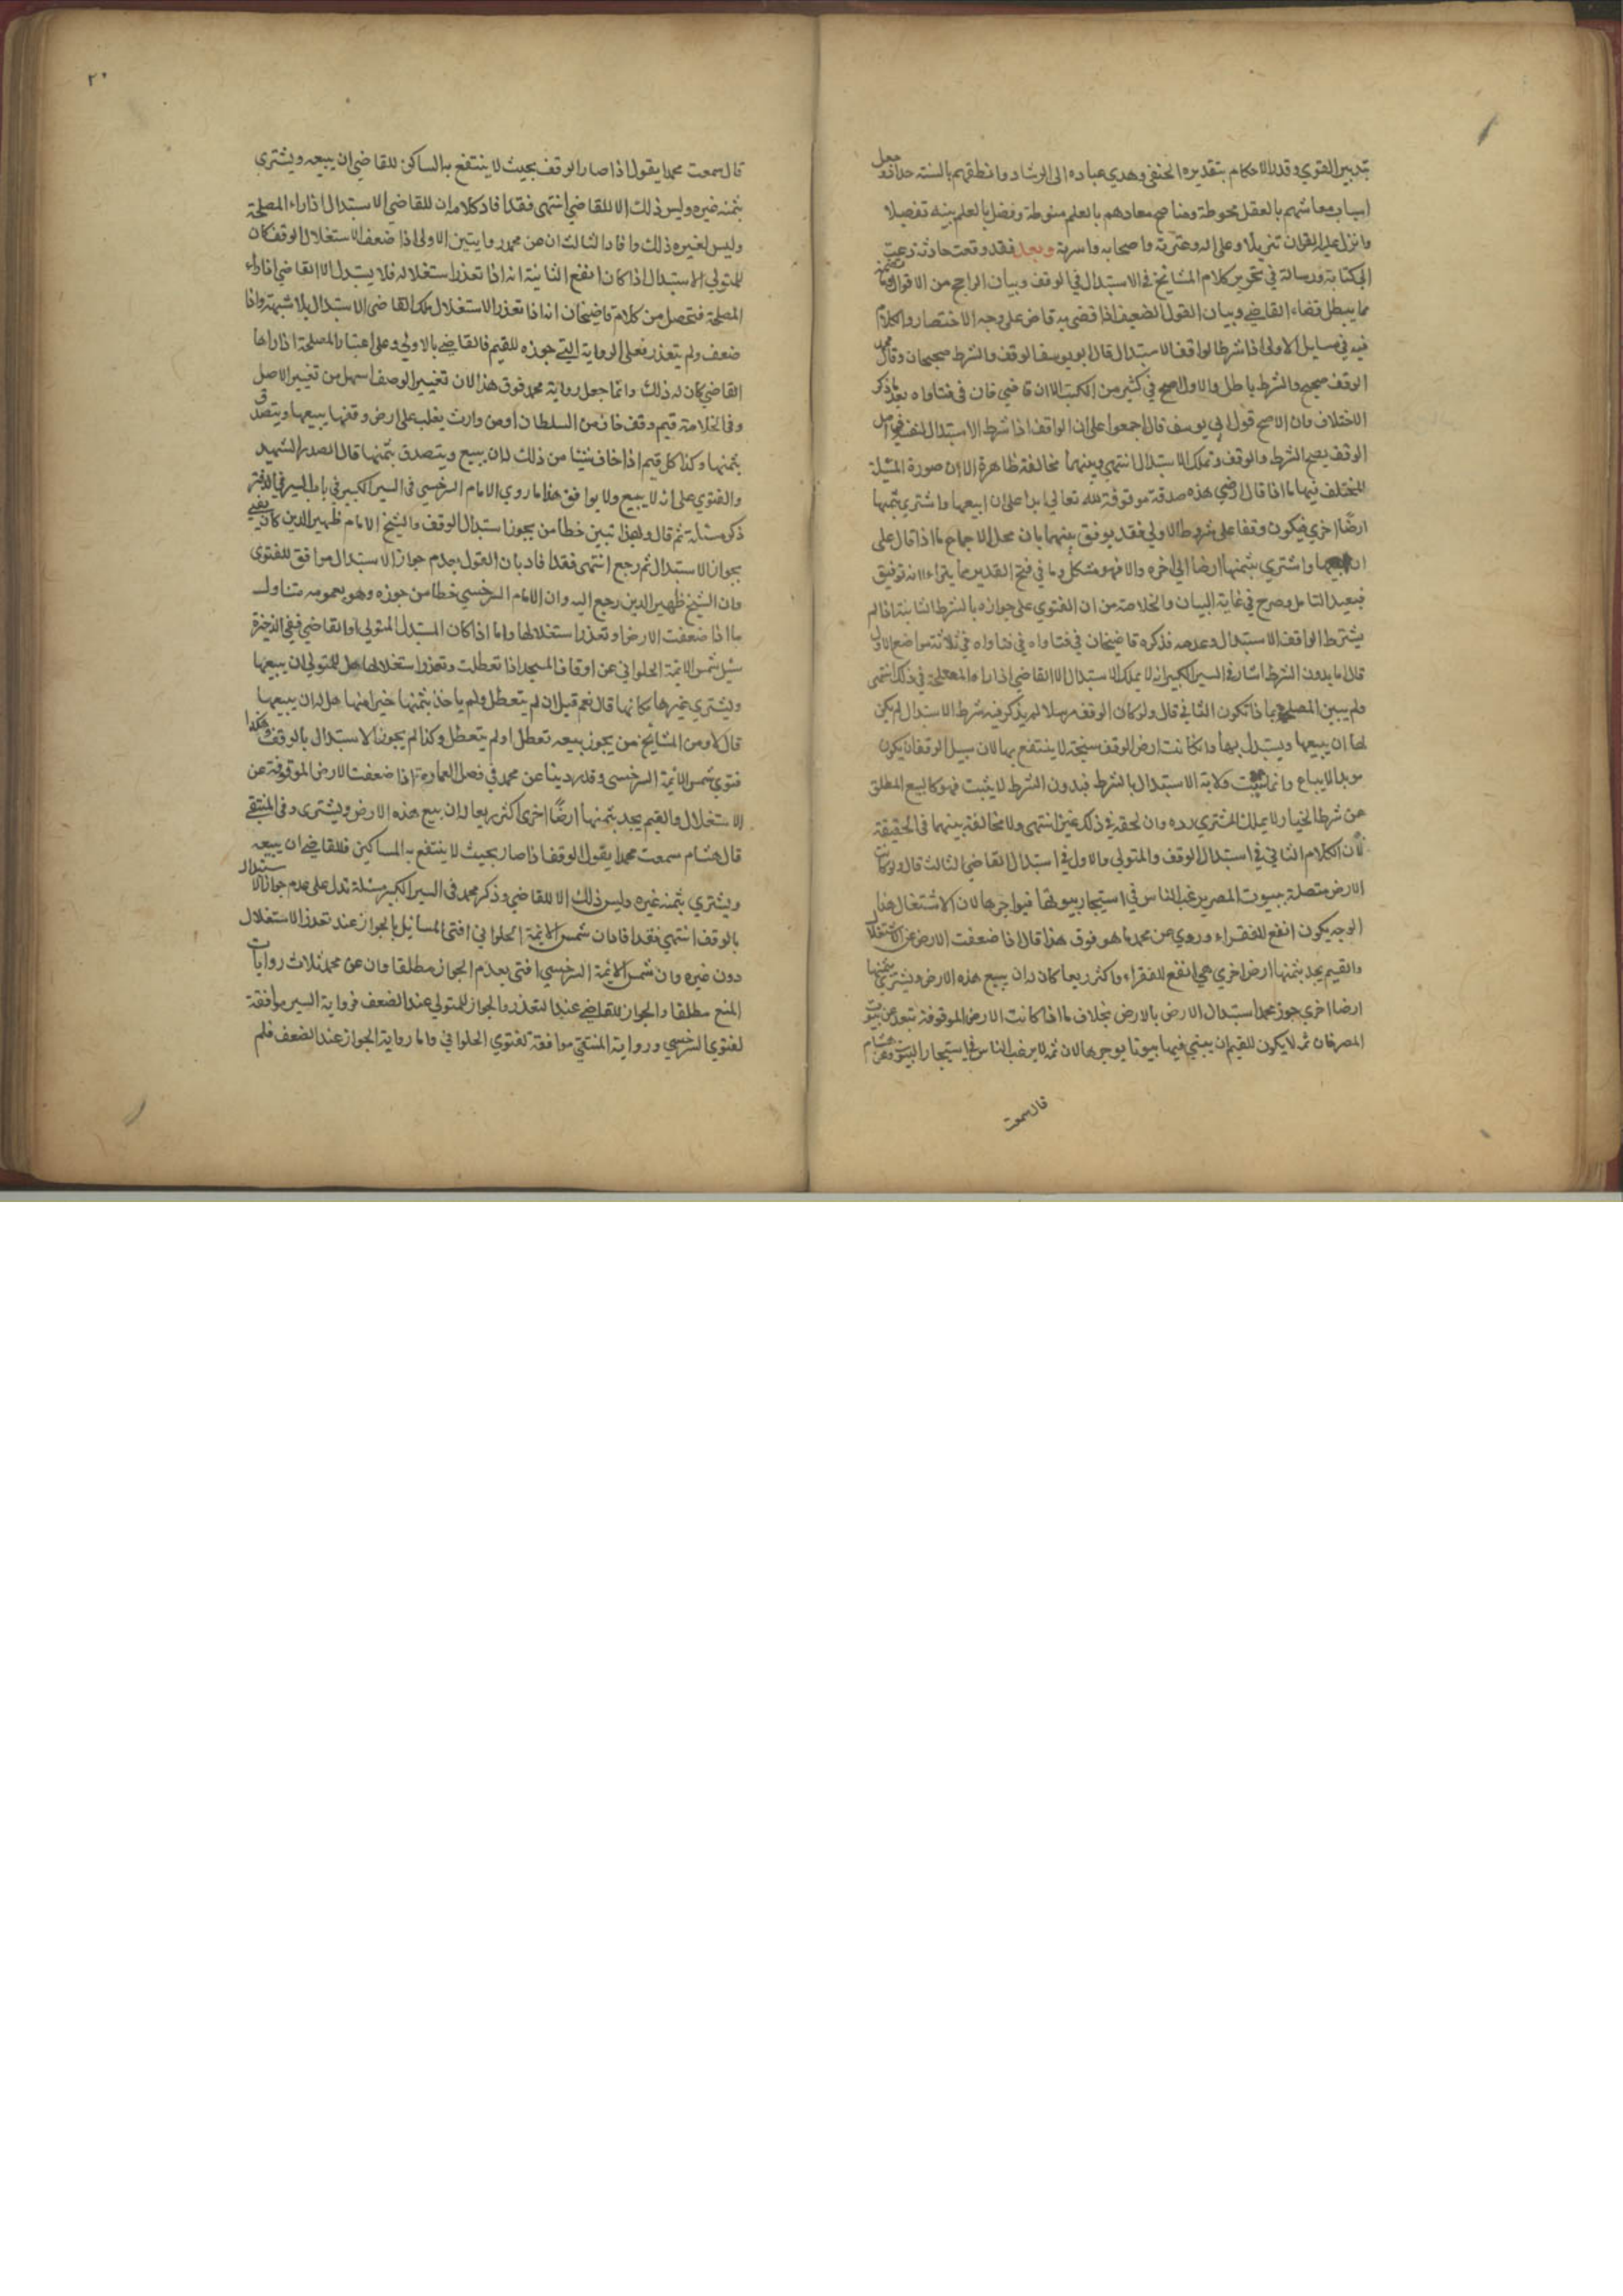 بتدبير الفتوي وقدر الاحكام بتقديره الحنفي وهدي عباده الى الرشاد وانطقهم بالسنة جعل
اسباب معاشهم بالعقل محوطة ومناجح معادهم بالعلم منوطة وفضل بالعلم بينه تفضيلا
وانزل عليه القران تنزيلا وعلى اله وعترته واصحابه واسرته وبعد فقد وقعت حادثة دعت
الى كتابة رسالة في تحرير كلام المشايخ في الاستبدال في الوقف وبيان الراجح من الاقوال
مما يبطل قضاء القاضي وبيان القول الضعيف اذا قضي به قاض على وجه الاختصار والكلام
فيه في مسايل الاولى اذا شرط الواقف الاستبدال قال ابو يوسف الوقف والشرط صحيحان وقال محمد
الوقف صحيح والشرط باطل والاول الصحيح في كثير من الكتب الا ان قاضي خان في فتاواه بعد ما ذكر
الاختلاف وان الاصح قول ابي يوسف قال اجمعوا على ان الواقف اذا شرط الاستبدال لنفسه في اصل
الوقف يصح الشرط والوقف وتملك الاستبدال انتهى وبينهما مخالفة ظاهرة الا ان صورة المسئلة
المختلف فيها ما اذا قال ارضي هذه صدقة موقوفة لله تعالي ابدا على ان ابيعها واشتري بثمنها
ارضًا اخري فيكون وقفا على شروط الاولي فقد يوفق بينهما بان محل الاجماع ما اذا قال على
ان ابيعها واشتري بثمنها ارضا الى اخره والا فهو مشكل وما في فتح القدير مما يتراءا انه توفيق
فبعيد التامل وصرح في غاية البيان والخلاصة من ان الفتوي على جوازه بالشرط الثانية اذا لم
يشترط الواقف الاستبدال وعدمه فذكره قاضيخان في فتاواه في ثلاثة مواضع الاول
قال اما بدون الشرط اشار في السير الكبير انه لا يملك الاستبدال الا القاضي اذا راء المصلحة في ذلك انتهى
ولم يبين المصلحة بماذا تكون الثاني قال ولو كان الوقف مرسلا لم يذكر فيه شرط الاستبدال لم يكن
لها ان يبيعها ويستبدل بها وان كانت ارض الوقف سبخة لا ينتفع بها لان سبيل الوقف ان يكون
موبدا لا يباع وانما يثبت ولاية الاستبدال بالشرط فبدون الشرط لا يثبت فهو كالبيع المطلق
عن شرط الخيار لا يملك المشتري رده وان لحقه في ذلك غبن انتهى ولا مخالفة بينهما في الحقيقة
لان الكلام الثاني في استبدال الوقف والمتولي والاول في استبدال القاضي الثالث قال ولو كانت
الارض متصلة ببيوت المصر يرغب الناس في استيجار بيوتها فيواجرها لان الاشتغال هذا
الوجه يكون انفع للفقراء وروي عن محمد ما هو فوق هذا قال اذا ضعفت الارض عن الاستغلال
والقيم يجد بثمنها ارض اخري هي انفع للفقراء واكثر ريعا كان له ان يبيع هذه الارض ويشتري بثمنها
ارضا اخري جوز محمد استبدال الارض بالارض بخلاف ما اذا كانت الارض الموقوفة تبعد عن بيوت
المصر فان ثم لا يكون للقيم ان يبني فيها بيوتا يوجرها لان ثم لا يرغب الناس في استيجار البيت وعن هشام
قال سمعت
٢٠
قال سمعت محمدا يقول اذا صار الوقف بحيث لا ينتفع به المساكين للقاضي ان يبيعه ويشتري
بثمنه غيره وليس ذلك الا للقاضي انتهى فقد افاد كلامه ان للقاضي الاستبدال اذا راء المصلحة
وليس لغيره ذلك وافاد الثالث ان عن محمد روايتين الاولى اذا ضعف الاستغلال الوقف كان
للمتولي الاستبدال اذا كان انفع الثانية انه اذا تعذر استغلاله فلا يستبدل الا القاضي اذا راء
المصلحة فتحصل من كلام قاضيخان انه اذا تعذر الاستغلال ملك القاضي الاستبدال بلا شبهة واذا
ضعف ولم يتعذر فعلى الرواية التي جوزه للقيم فالقاضي بالاولي وعلى اعتبار المصلحة اذا راها
القاضي كان له ذلك وانما جعل رواية محمد فوق هذا لان تغيير الوصف اسهل من تغيير الاصل
وفي الخلاصة قيم وقف خاف من السلطان او من وارث يغلب على ارض وقفها يبيعها ويتصدق
بثمنها وكذا كل قيم اذا خاف شيئا من ذلك له ان يبيع ويتصدق بثمنها قال الصدر الشهيد
والفتوي على انه لا يبيع ولا يوافق هذا ما روي الامام السرخسي في السير الكبير في باب
ذكر مسئلة ثم قال وبهذا تبين خطا من يجوز استبدال الوقف والشيخ الامام ظهير الدين كان يفتي
بجواز الاستبدال ثم رجع انتهى فقد افاد بان القول بعدم جواز الاستبدال موافق للفتوى
وان الشيخ ظهير الدين رجع اليه وان الامام السرخسي خطا من جوزه وهو بعمومه متناول
ما اذا ضعفت الارض او تعذر استغلالها واما اذا كان المستبدل المتولي او القاضي ففي الذخيرة
سئل شمس الائمة الحلواني عن اوقاف المسجد اذا تعطلت وتعذر استغلالها هل للمتولي ان يبيعها
ويشتري بثمنها مكانها قال نعم قيل ان لم يتعطل ولم ياخذ بثمنها خير منها هل له ان يبيعها
قال لا ومن المشايخ من يجوز بيعه تعطل او لم يتعطل وكذا لم يجوز الاستبدال بالوقف وهكذا
فتوي شمس الائمة السرخسي وقد روينا عن محمد في فصل العمارة اذا ضعفت الارض الموقوفة عن
الاستغلال والقيم يجد بثمنها ارضًا اخرى اكثر ريعا له ان يبيع هذه الارض ويشترى وفي المنتقى
قال هشام سمعت محمدا يقول الوقف اذا صار بحيث لا ينتفع به المساكين فللقاضي ان يبيعه
ويشتري بثمنه غيره وليس ذلك الا للقاضي وذكر محمد في السير الكبير مسئلة تدل على عدم جواز الاستبدال
بالوقف انتهى فقد افاد ان شمس الائمة الحلواني افتى المسايل بالجواز عند تعذر الاستغلال
دون غيره وان شمس الائمة السرخسي افتى بعدم الجواز مطلقا وان عن محمد ثلاث روايات
المنع مطلقا والجواز للقاضي عند التعذر والجواز للمتولي عند الضعف فرواية السير موافقة
لفتوي السرخسي ورواية المنتقى موافقة لفتوي الحلواني واما رواية الجواز عند الضعف فلم